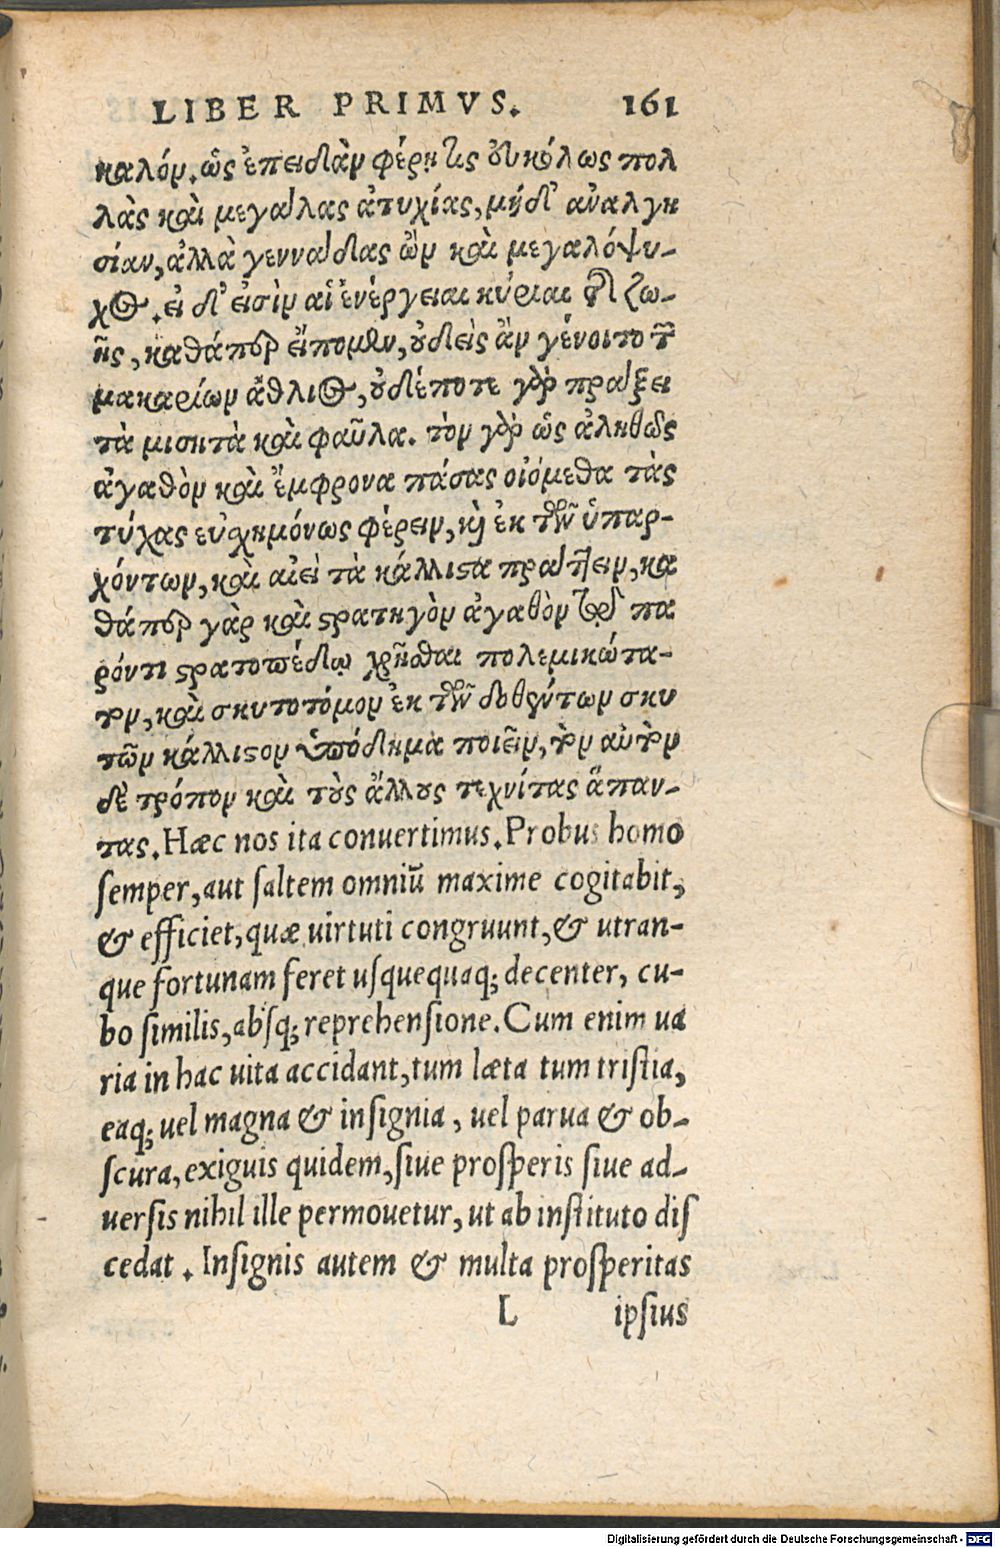 LIBER PRIMVS. 161
καλόν. ὡς ἐπειδὰν φέρῃ τις εὐκόλως πολ
λὰς καὶ μεγάλας ἀτυχίας, μὴ δι' ἀναλγη
σίαν, ἀλλὰ γεννάδας ὢν καὶ μεγαλόψυ-
χος. εἰ δ' εἰσὶν αἱ ἐνέργειαι κύριαι τῆς ζω-
ῆς, καθάπερ εἴπομεν, οὐδεὶς ἂν γένοιτο τῶν
μακαρίων ἄθλιος, οὐδέποτε γὰρ πράξει
τὰ μισητὰ καὶ φαῦλα. τὸν γὰρ ὡς ἀληθῶς
ἀγαθὸν καὶ ἔμφρονα πάσας οἰόμεθα τὰς
τύχας εὐσχημόνως φέρειν, καὶ ἐκ τῶν ὑπαρ-
χόντων, καὶ αἰεὶ τὰ κάλλιστα πράττειν, κα
θάπερ γὰρ καὶ στρατηγὸν ἀγαθὸν τῷ πα
ρόντι στρατοπέδῳ χρῆσθαι πολεμικώτα-
τον, καὶ σκυτοτόμον ἐκ τῶν δοθέντων σκυ
τῶν κάλλιστον ὑπόδημα ποιεῖν, τὸν αὐτὸν
δὲ τρόπον καὶ τοὺς ἄλλους τεχνίτας ἅπαν-
τας. Hæc nos ita conuertimus. Probus homo
semper, aut saltem omniũ maxime cogitabit,
& efficiet, quæ uirtuti congruunt, & utran-
que fortunam feret usquequaq; decenter, cu-
bo similis, absq; reprehensione. Cum enim ua
ria in hac uita accidant, tum læta tum tristia,
eaq; uel magna & insignia, uel parua & ob-
scura, exiguis quidem, siue prosperis siue ad-
uersis nihil ille permouetur, ut ab instituto dis
cedat. Insignis autem & multa prosperitas
L ipsius
Digitalisierung gefördert durch die Deutsche Forschungsgemeinschaft - DFG